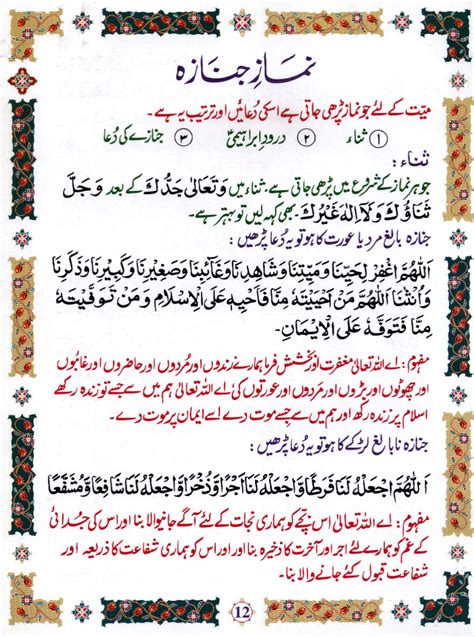 نمازِ جنازہ
میّت کے لئے جو نماز پڑھی جاتی ہے اسکی دُعائیں اور ترتیب یہ ہے۔
① ثناء ② درودِ ابراہیمیؑ ③ جنازے کی دُعا
ثناء :
جو ہر نماز کے شروع میں پڑھی جاتی ہے۔ ثناء میں وَتَعَالٰى جَدُّكَ کے بعد وَجَلَّ
ثَنَاؤُكَ وَلَآ اِلٰهَ غَيْرُكَ۔ بھی کہہ لیں تو بہتر ہے۔
جنازہ بالغ مرد یا عورت کا ہو تو یہ دُعا پڑھیں :
اَللّٰهُمَّ اغْفِرْ لِحَيِّنَا وَمَيِّتِنَا وَشَاهِدِنَا وَغَآئِبِنَا وَصَغِيْرِنَا وَكَبِيْرِنَا وَذَكَرِنَا
وَاُنْثَانَا اَللّٰهُمَّ مَنْ اَحْيَيْتَهٗ مِنَّا فَاَحْيِهٖ عَلَى الْاِسْلَامِ وَمَنْ تَوَفَّيْتَهٗ
مِنَّا فَتَوَفَّهٗ عَلَى الْاِيْمَانِ۔
مفہوم : اے اللہ تعالیٰ مغفرت اور بخشش فرما ہمارے زندوں اور مُردوں اور حاضروں اور غائبوں
اور چھوٹوں اور بڑوں اور مَردوں اور عورتوں کی اے اللہ تعالیٰ ہم میں سے جسے تو زندہ رکھے
اسلام پر زندہ رکھ اور ہم میں سے جسے موت دے اسے ایمان پر موت دے۔
جنازہ نابالغ لڑکے کا ہو تو یہ دُعا پڑھیں :
اَللّٰهُمَّ اجْعَلْهُ لَنَا فَرَطًا وَّاجْعَلْهُ لَنَا اَجْرًا وَّذُخْرًا وَّاجْعَلْهُ لَنَا شَافِعًا وَّمُشَفَّعًا
مفہوم : اے اللہ تعالیٰ اس بچّے کو ہماری نجات کے لئے آگے جانیوالا بنا اور اس کی جُدائی
کے غم کو ہمارے لئے اجر اور آخرت کا ذخیرہ بنا اور اور اس کو ہماری شفاعت کا ذریعہ اور
شفاعت قبول کئے جانے والا بنا۔
12